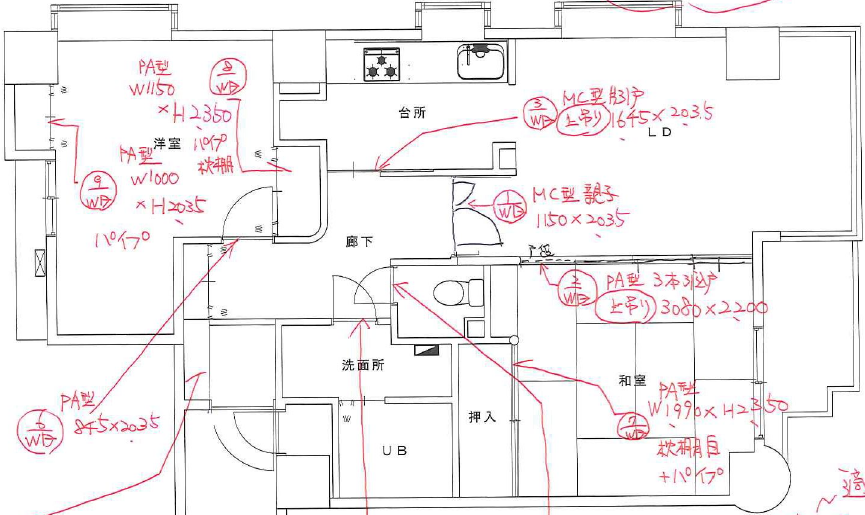 PA型
W1150
×H2350
パイプ
枕棚
8
WD
洋室
PA型
W1000
×H2035
パイプ
9
WD
台所
3
WD
MC型 片引戸
上吊り 1645×2035
LD
1
WD
MC型 親子
1150×2035
廊下
2
WD
PA型 3本引込戸
上吊り 3080×2200
洗面所
和室
PA型
W1990×H2350
7
WD
枕棚
+パイプ
押入
UB
6
WD
PA型
845×2035